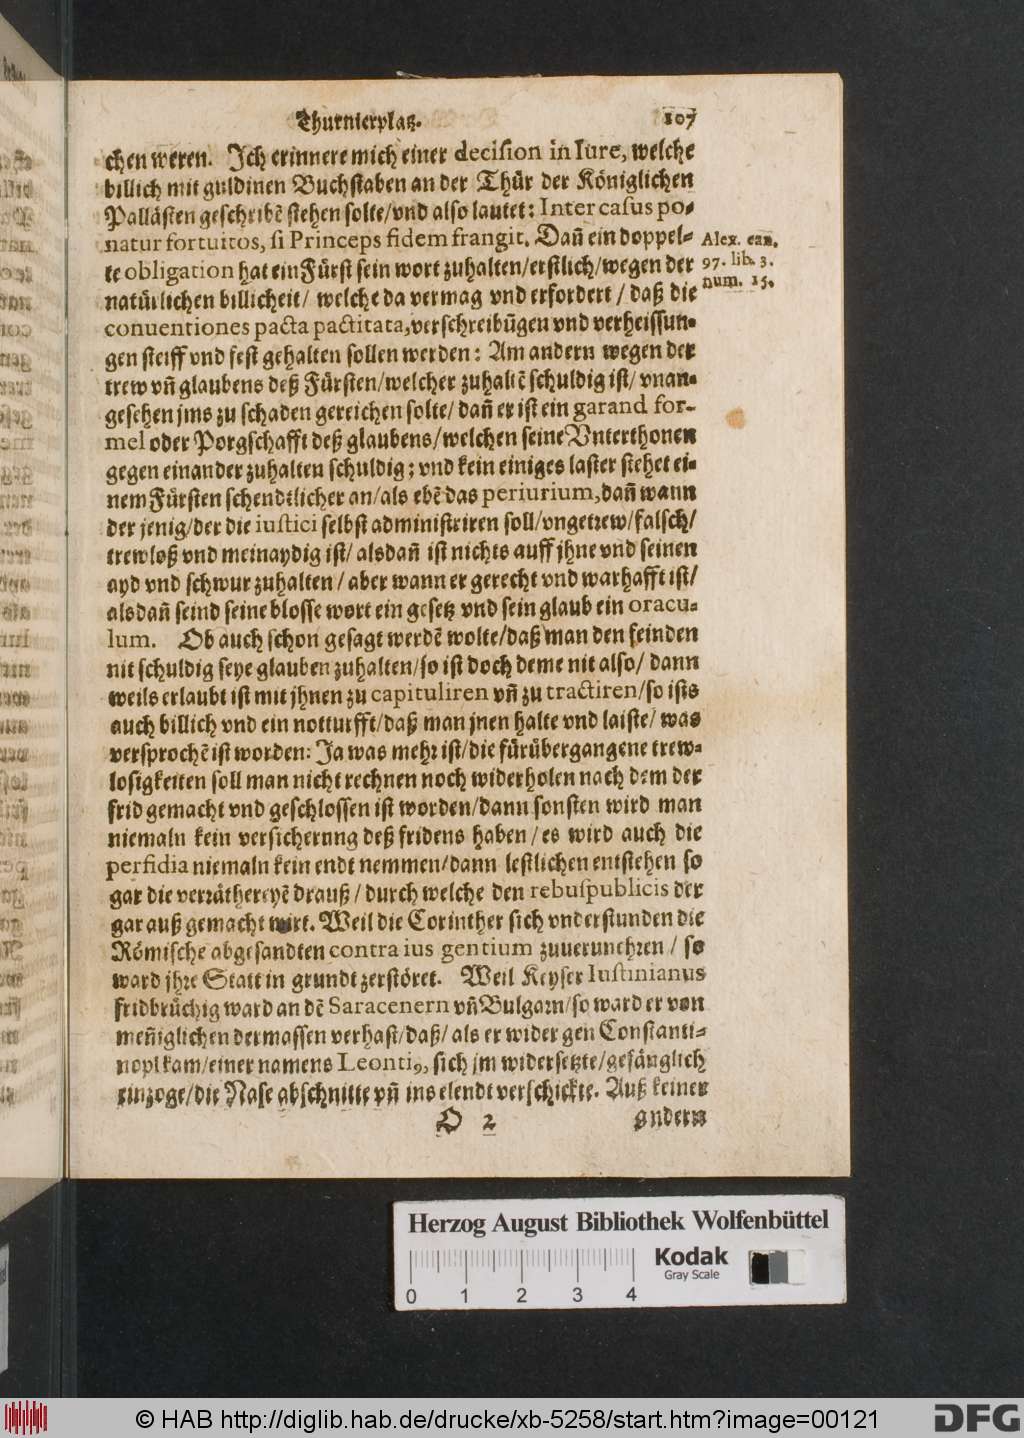 Thurnierplatz. 107
chen weren. Ich erinnere mich einer decision in Iure, welche
billich mit guldinen Buchstaben an der Thür der Königlichen
Pallästen geschribẽ stehen solte/vnd also lautet: Inter casus po-
natur fortuitos, si Princeps fidem frangit. Dañ ein doppel-
te obligation hat ein Fürst sein wort zuhalten/erstlich/wegen der
natürlichen billicheit/ welche da vermag vnd erfordert / daß die
conuentiones pacta pactitata, verschreibũgen vnd verheissun-
gen steiff vnd fest gehalten sollen werden: Am andern wegen der
trew vñ glaubens deß Fürsten/welcher zuhaltẽ schuldig ist/ vnan-
gesehen jms zu schaden gereichen solte/ dañ er ist ein garand for-
mel oder Porgschafft deß glaubens/welchen seine Vnterthonen
gegen einander zuhalten schuldig; vnd kein einiges laster stehet ei-
nem Fürsten schendtlicher an/als ebẽ das periurium, dañ wann
der jenig/der die iustici selbst administriren soll/vngetrew/falsch/
trewloß vnd meinaydig ist/ alsdañ ist nichts auff jhne vnd seinen
ayd vnd schwur zuhalten / aber wann er gerecht vnd warhafft ist/
alsdañ seind seine blosse wort ein gesetz vnd sein glaub ein oracu-
lum. Ob auch schon gesagt werdẽ wolte/daß man den feinden
nit schuldig seye glauben zuhalten/so ist doch deme nit also/ dann
weils erlaubt ist mit jhnen zu capituliren vñ zu tractiren/so ists
auch billich vnd ein notturfft/daß man jnen halte vnd laiste/ was
versprochẽ ist worden: Ja was mehr ist/die fürübergangene trew-
losigkeiten soll man nicht rechnen noch widerholen nach dem der
frid gemacht vnd geschlossen ist worden/dann sonsten wird man
niemaln kein versicherung deß fridens haben / es wird auch die
perfidia niemaln kein endt nemmen/dann lestlichen entstehen so
gar die verräthereyẽ drauß / durch welche den rebuspublicis der
gar auß gemacht wirt. Weil die Corinther sich vnderstunden die
Römische abgesandten contra ius gentium zuuerunehren / so
ward jhre Statt in grundt zerstöret. Weil Keyser Iustinianus
fridbrüchig ward an dẽ Saracenern vñ Bulgarn/so ward er von
meñiglichen dermassen verhast/daß/ als er wider gen Constanti-
nopl kam/einer namens Leontiꝰ, sich jm widersetzte/gefänglich
einzoge/die Nase abschnitte vñ ins elendt verschickte. Auß keiner
O 2 andern
Alex. can.
97. lib. 3.
num. 15.
Herzog August Bibliothek Wolfenbüttel
Kodak
Gray Scale
0 1 2 3 4
© HAB http://diglib.hab.de/drucke/xb-5258/start.htm?image=00121
DFG